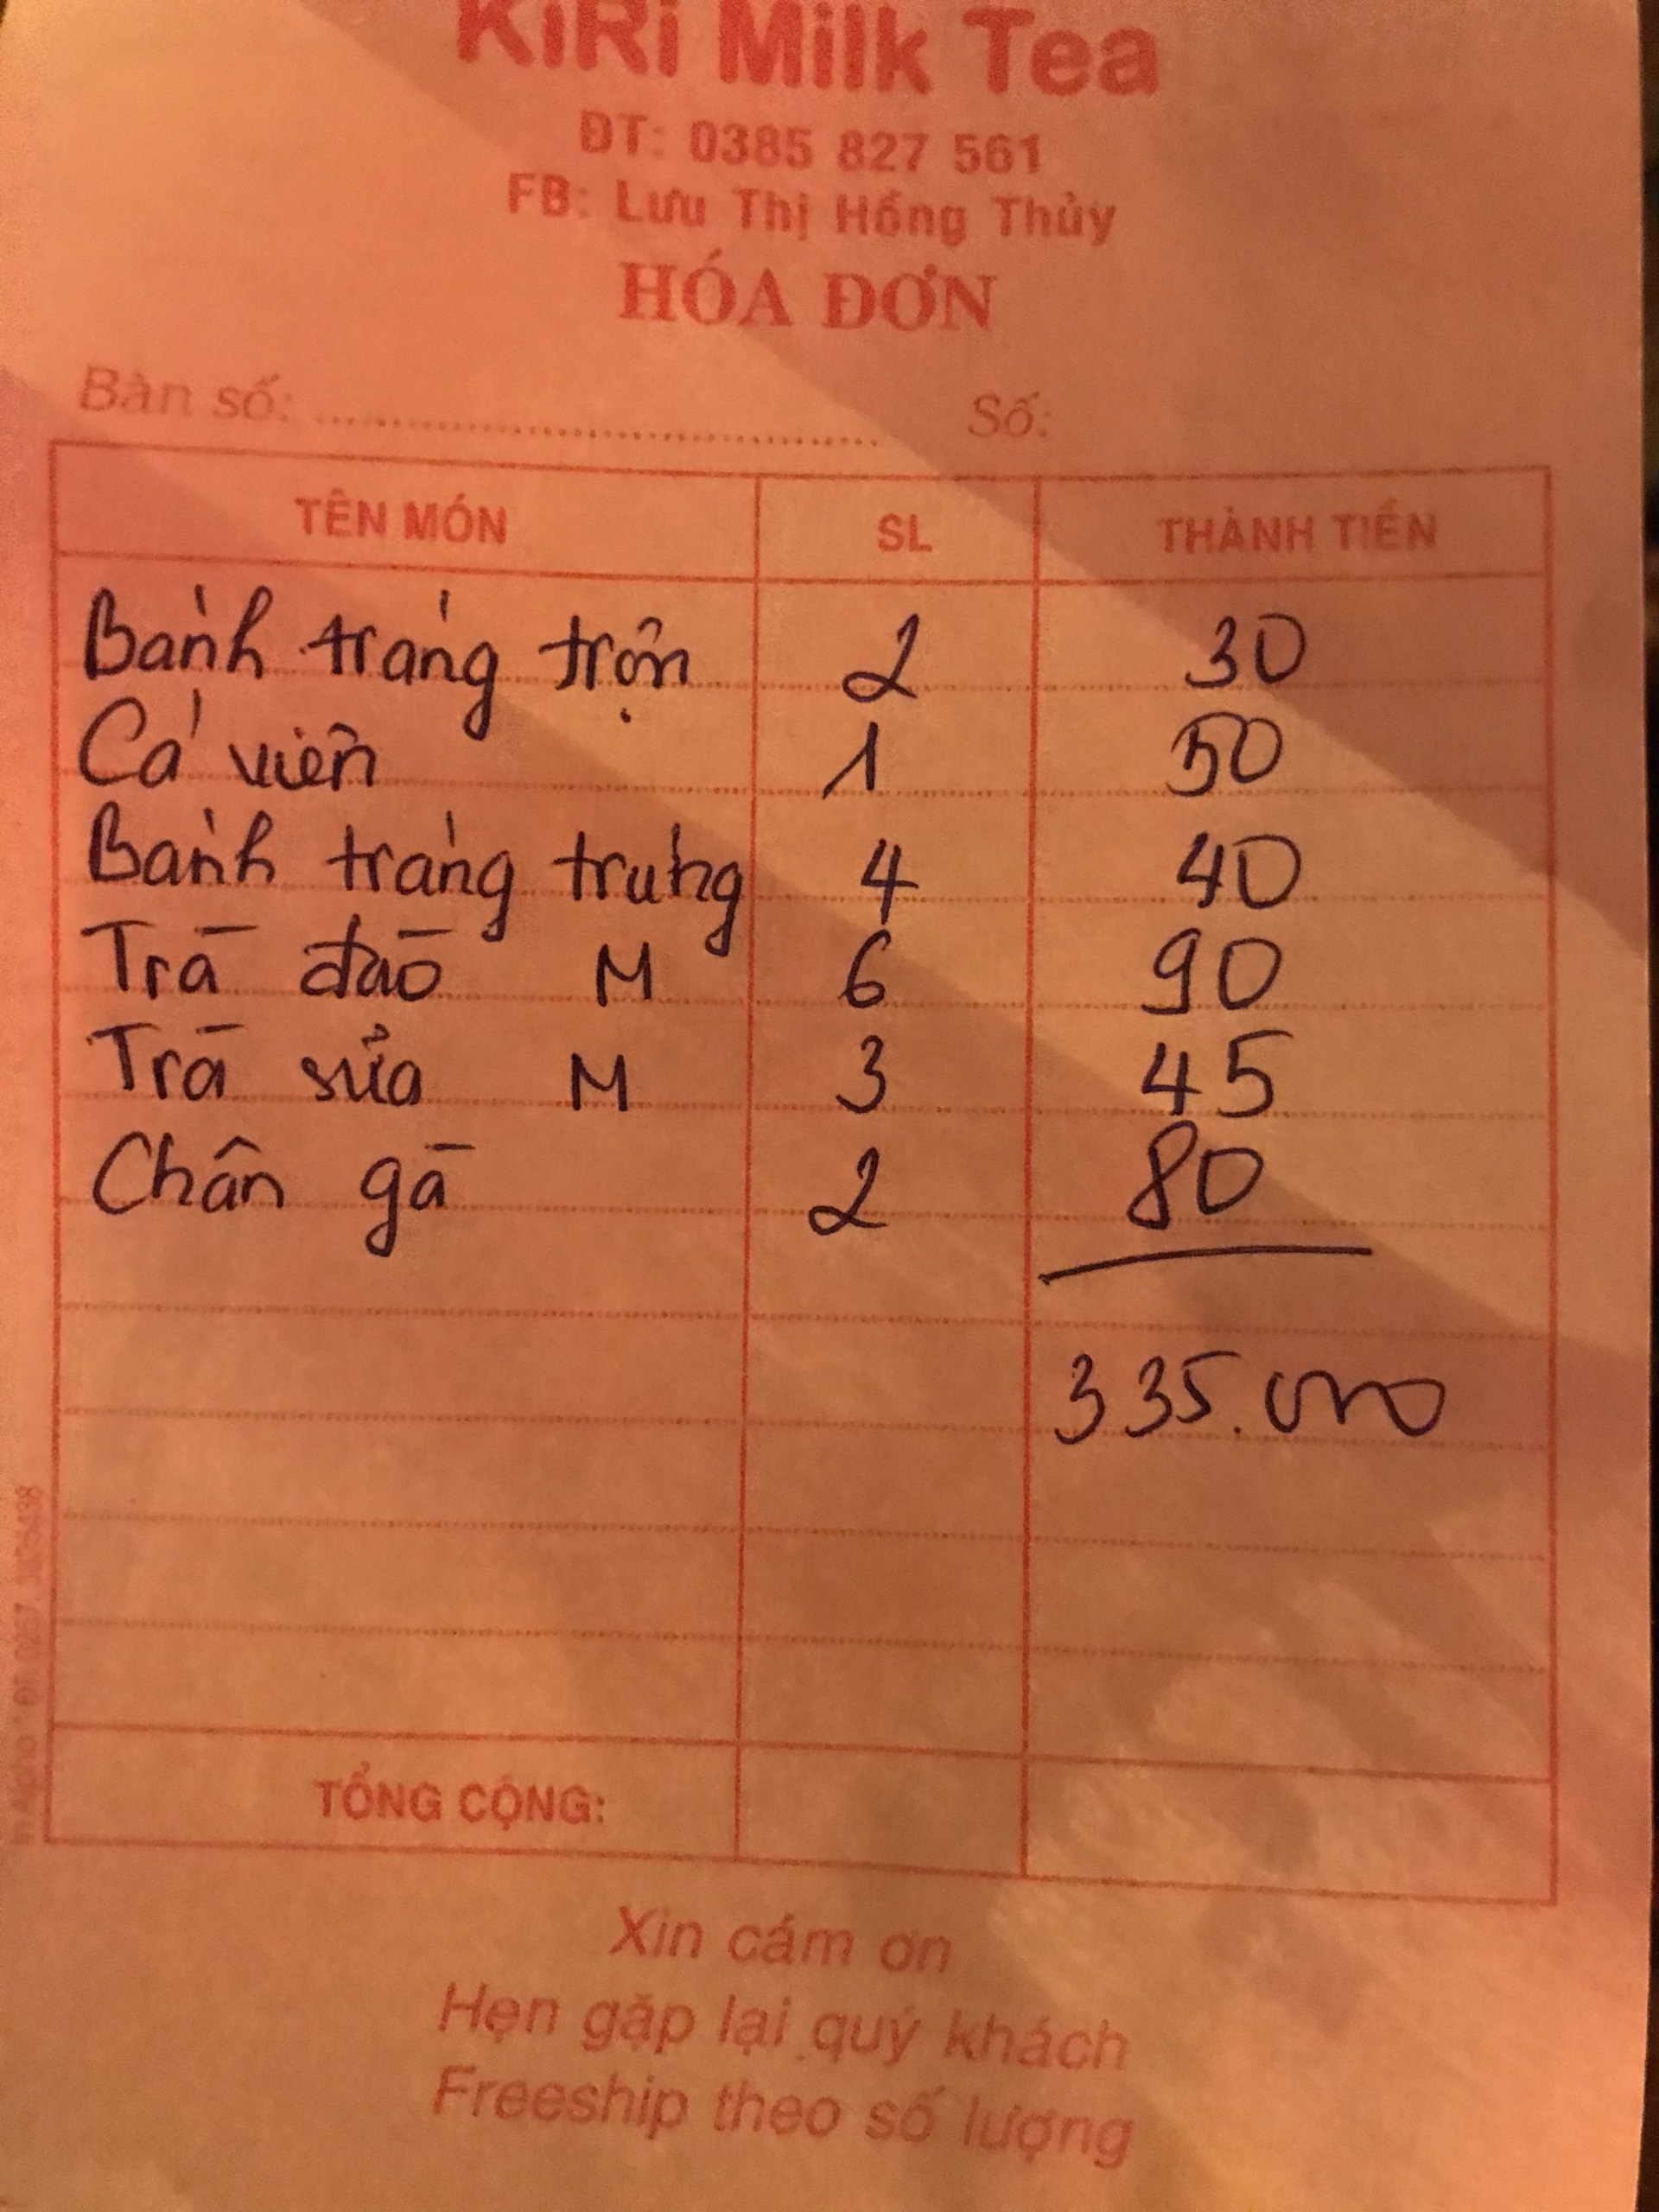 KiRi Milk Tea
ĐT: 0385 827 561
FB: Lưu Thị Hồng Thủy
HÓA ĐƠN
Bàn số: Số:
TÊN MÓN SL THÀNH TIỀN
Bánh tráng trộn 2 30
Cá viên 1 50
Bánh tráng trứng 4 40
Trà đào M 6 90
Trà sữa M 3 45
Chân gà 2 80
335.000
TỔNG CỘNG:
Xin cám ơn
Hẹn gặp lại quý khách
Freeship theo số lượng